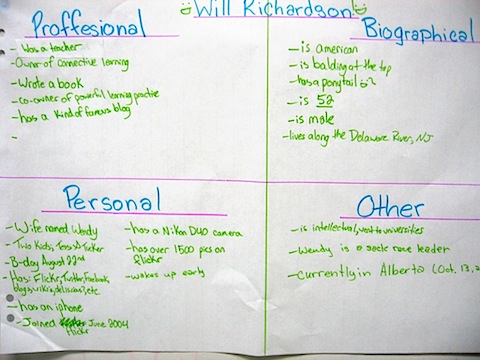 Will Richardson
Proffesional
- Was a teacher
- Owner of connective learning
- Wrote a book
- co-owner of powerful learning practise
- has a kind of famous blog
-
Biographical
- is american
- is balding at the top
- has a ponytail
- is 52
- is male
- lives along the Delaware River, NJ
Personal
- Wife named Wendy
- Two Kids, Tess & Tucker
- B-day August 22nd
- Has: Flickr, Twitter, Facebook,
blogs, wikis, delicious, etc.
- has an iphone
- Joined June 2004
flickr
- has a Nikon D40 camera
- has over 1500 pics on
flickr
- wakes up early
Other
- is intellectual, went to universities
- Wendy is a sack race leader
- currently in Alberta (Oct. 13, 2